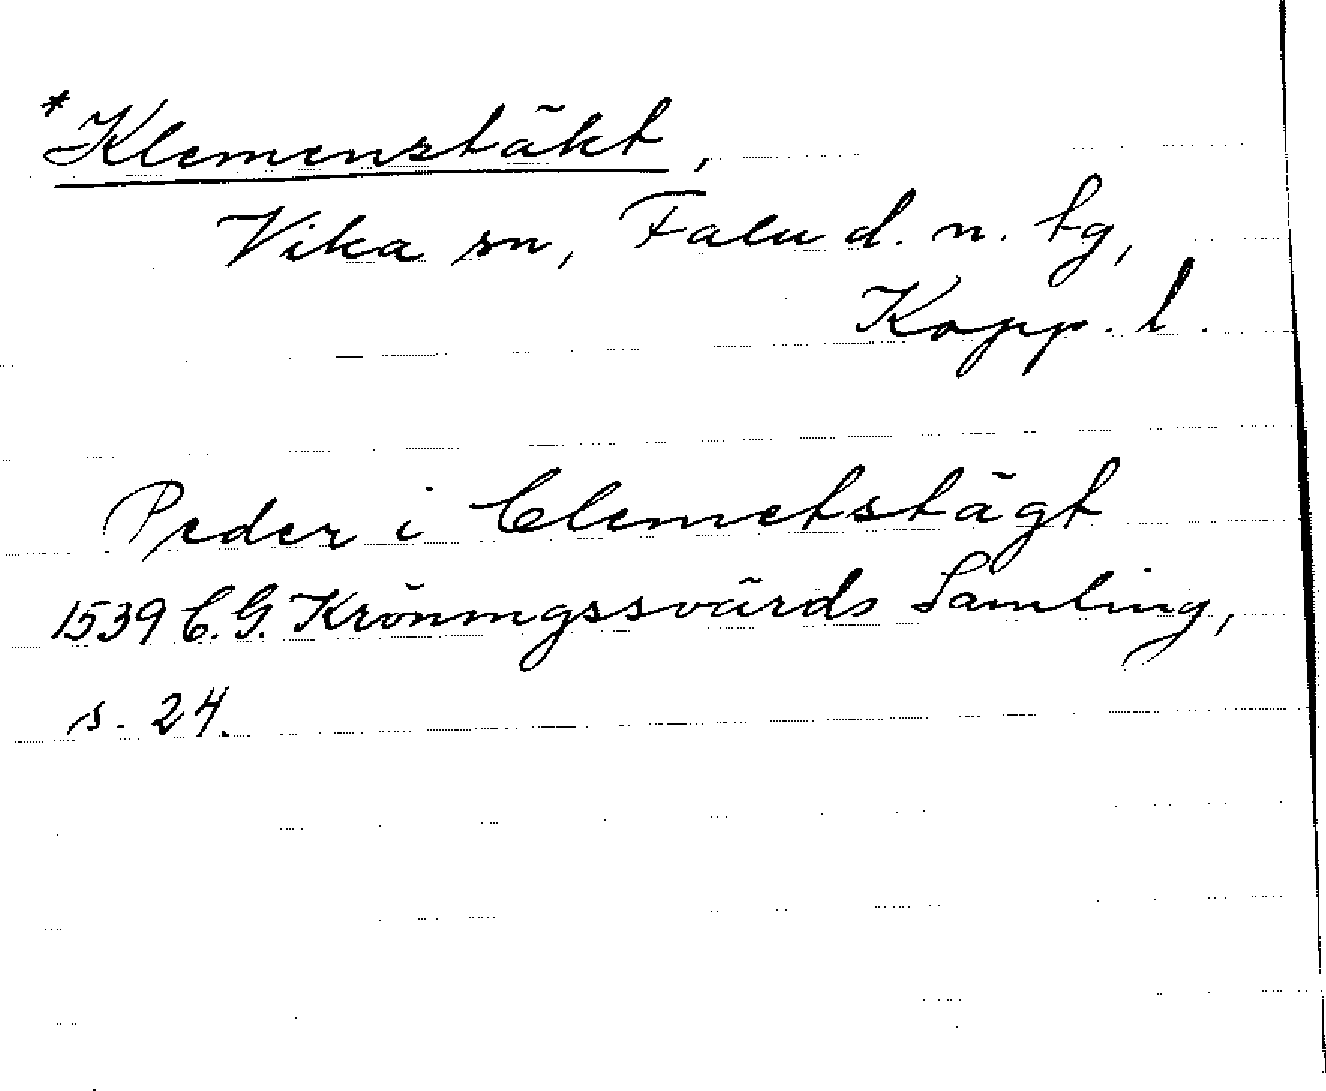 *Klemenstäkt,
Vika sn, Falu d. n. tg,
Kopp. l.
Peder i Clemetstägt
1539 C. G. Kröningssvärds Samling,
s. 24.